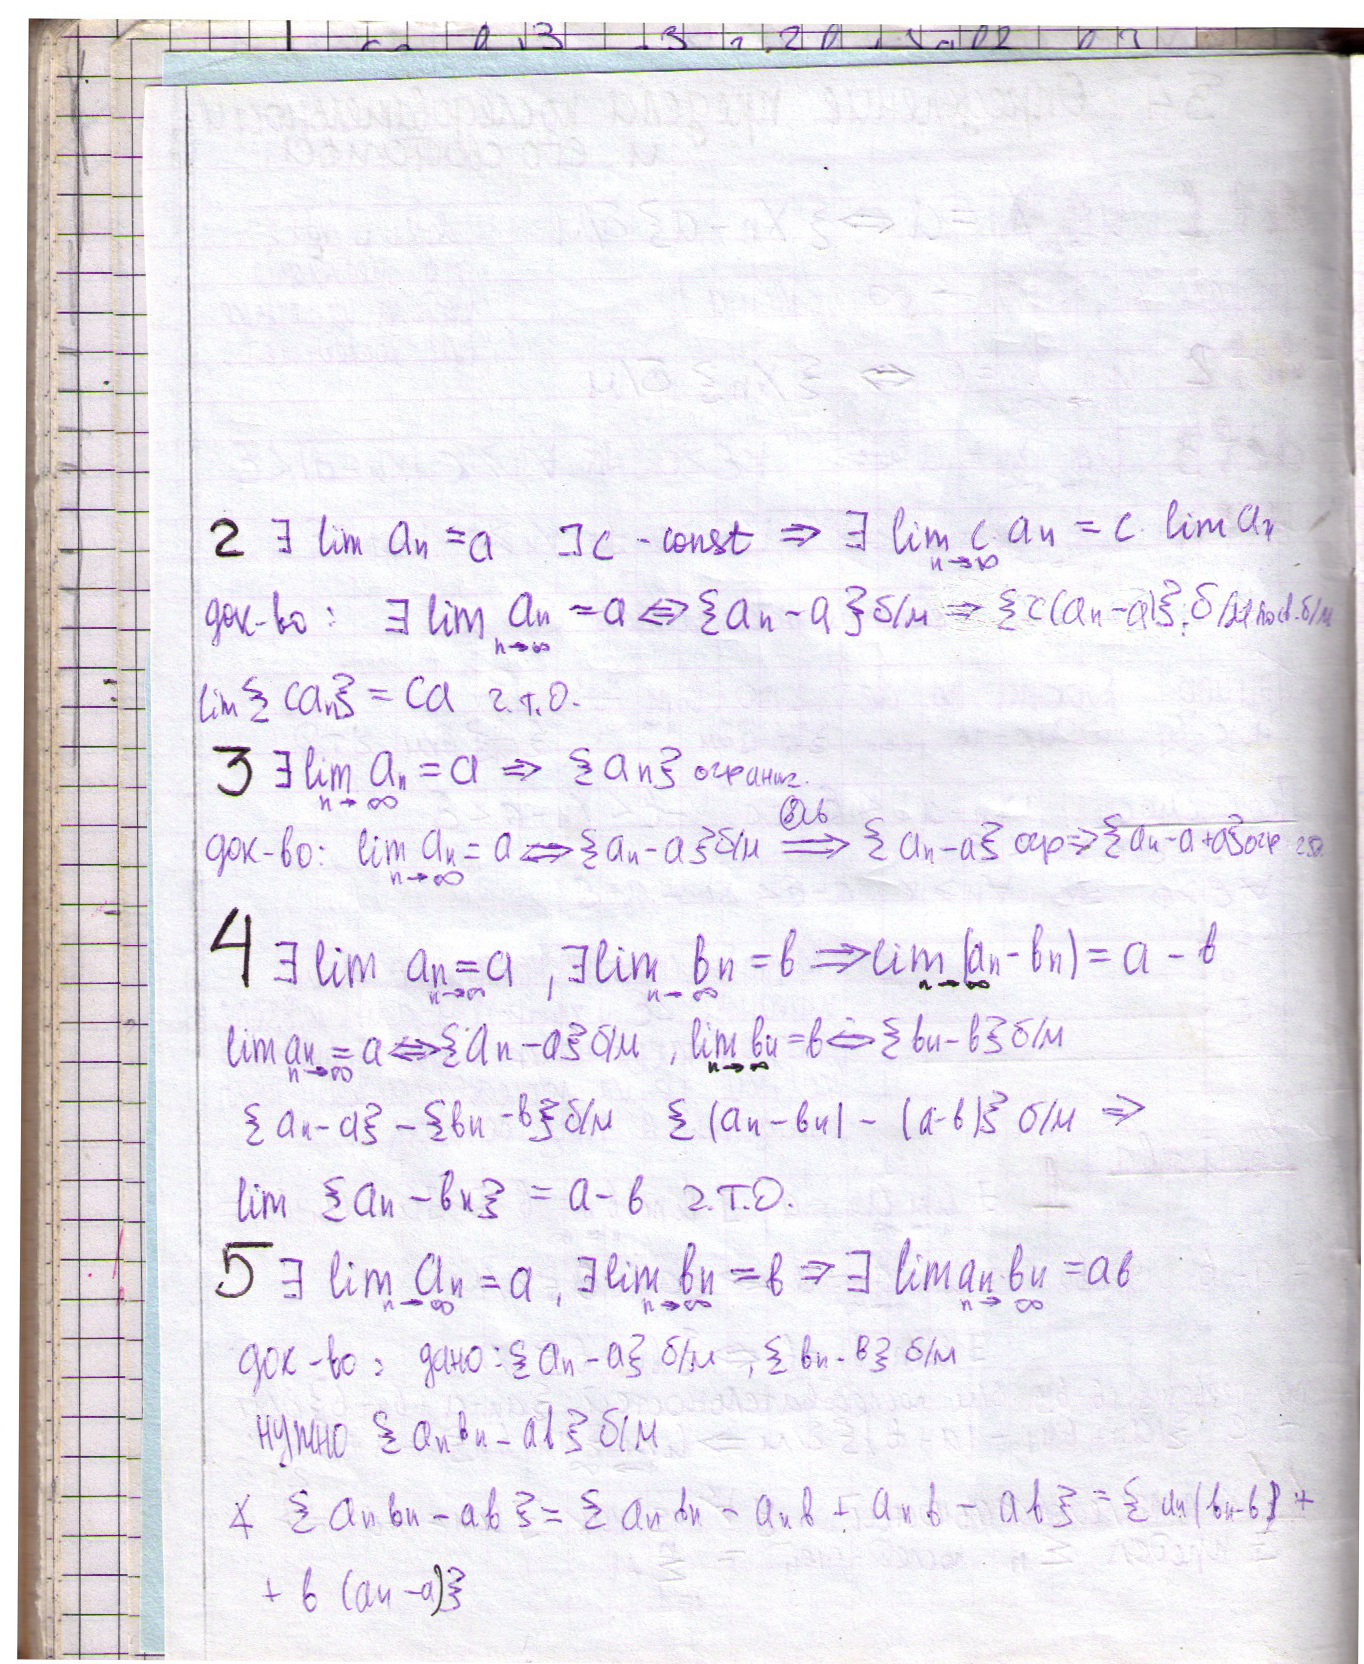 2 ∃ lim aₙ = a ∃ c - const ⇒ ∃ lim c aₙ = c lim aₙ
n→∞
док-во: ∃ lim aₙ = a ⇔ {aₙ - a} б/м ⇒ {c(aₙ - a)} б/м
n→∞
lim {caₙ} = ca ч.т.д.
3 ∃ lim aₙ = a ⇒ {aₙ} огранич.
n→∞
док-во: lim aₙ = a ⇔ {aₙ - a} б/м ⇒ {aₙ - a} огр ⇒ {aₙ - a + a} огр
n→∞
4 ∃ lim aₙ = a, ∃ lim bₙ = b ⇒ lim (aₙ - bₙ) = a - b
n→∞ n→∞ n→∞
lim aₙ = a ⇔ {aₙ - a} б/м, lim bₙ = b ⇔ {bₙ - b} б/м
n→∞ n→∞
{aₙ - a} - {bₙ - b} б/м {(aₙ - bₙ) - (a - b)} б/м ⇒
lim {aₙ - bₙ} = a - b ч.т.д.
5 ∃ lim aₙ = a, ∃ lim bₙ = b ⇒ ∃ lim aₙ bₙ = ab
n→∞ n→∞ n→∞
док-во: дано: {aₙ - a} б/м, {bₙ - b} б/м
нужно {aₙbₙ - ab} б/м
∢ {aₙbₙ - ab} = {aₙbₙ - aₙb + aₙb - ab} = {aₙ(bₙ - b) +
+ b (aₙ - a)}